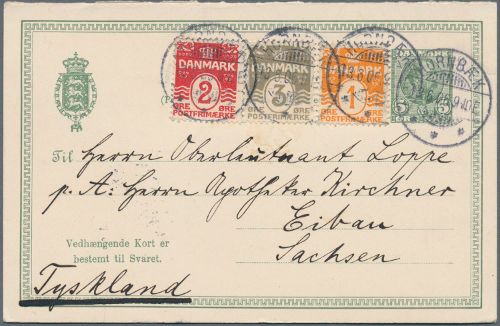 DANMARK
2
ØRE ØRE
POSTFRIMÆRKE
DANMARK
3
ØRE ØRE
POSTFRIMÆRKE
DANMARK
1
ØRE ØRE
POSTFRIMÆRKE
5 5
HORNBÆK
Til Herrn Oberleutnant Loppe
p. A: Herrn Apotheker Kirchner
Eibau
Sachsen
Vedhængende Kort er
bestemt til Svaret.
Tyskland